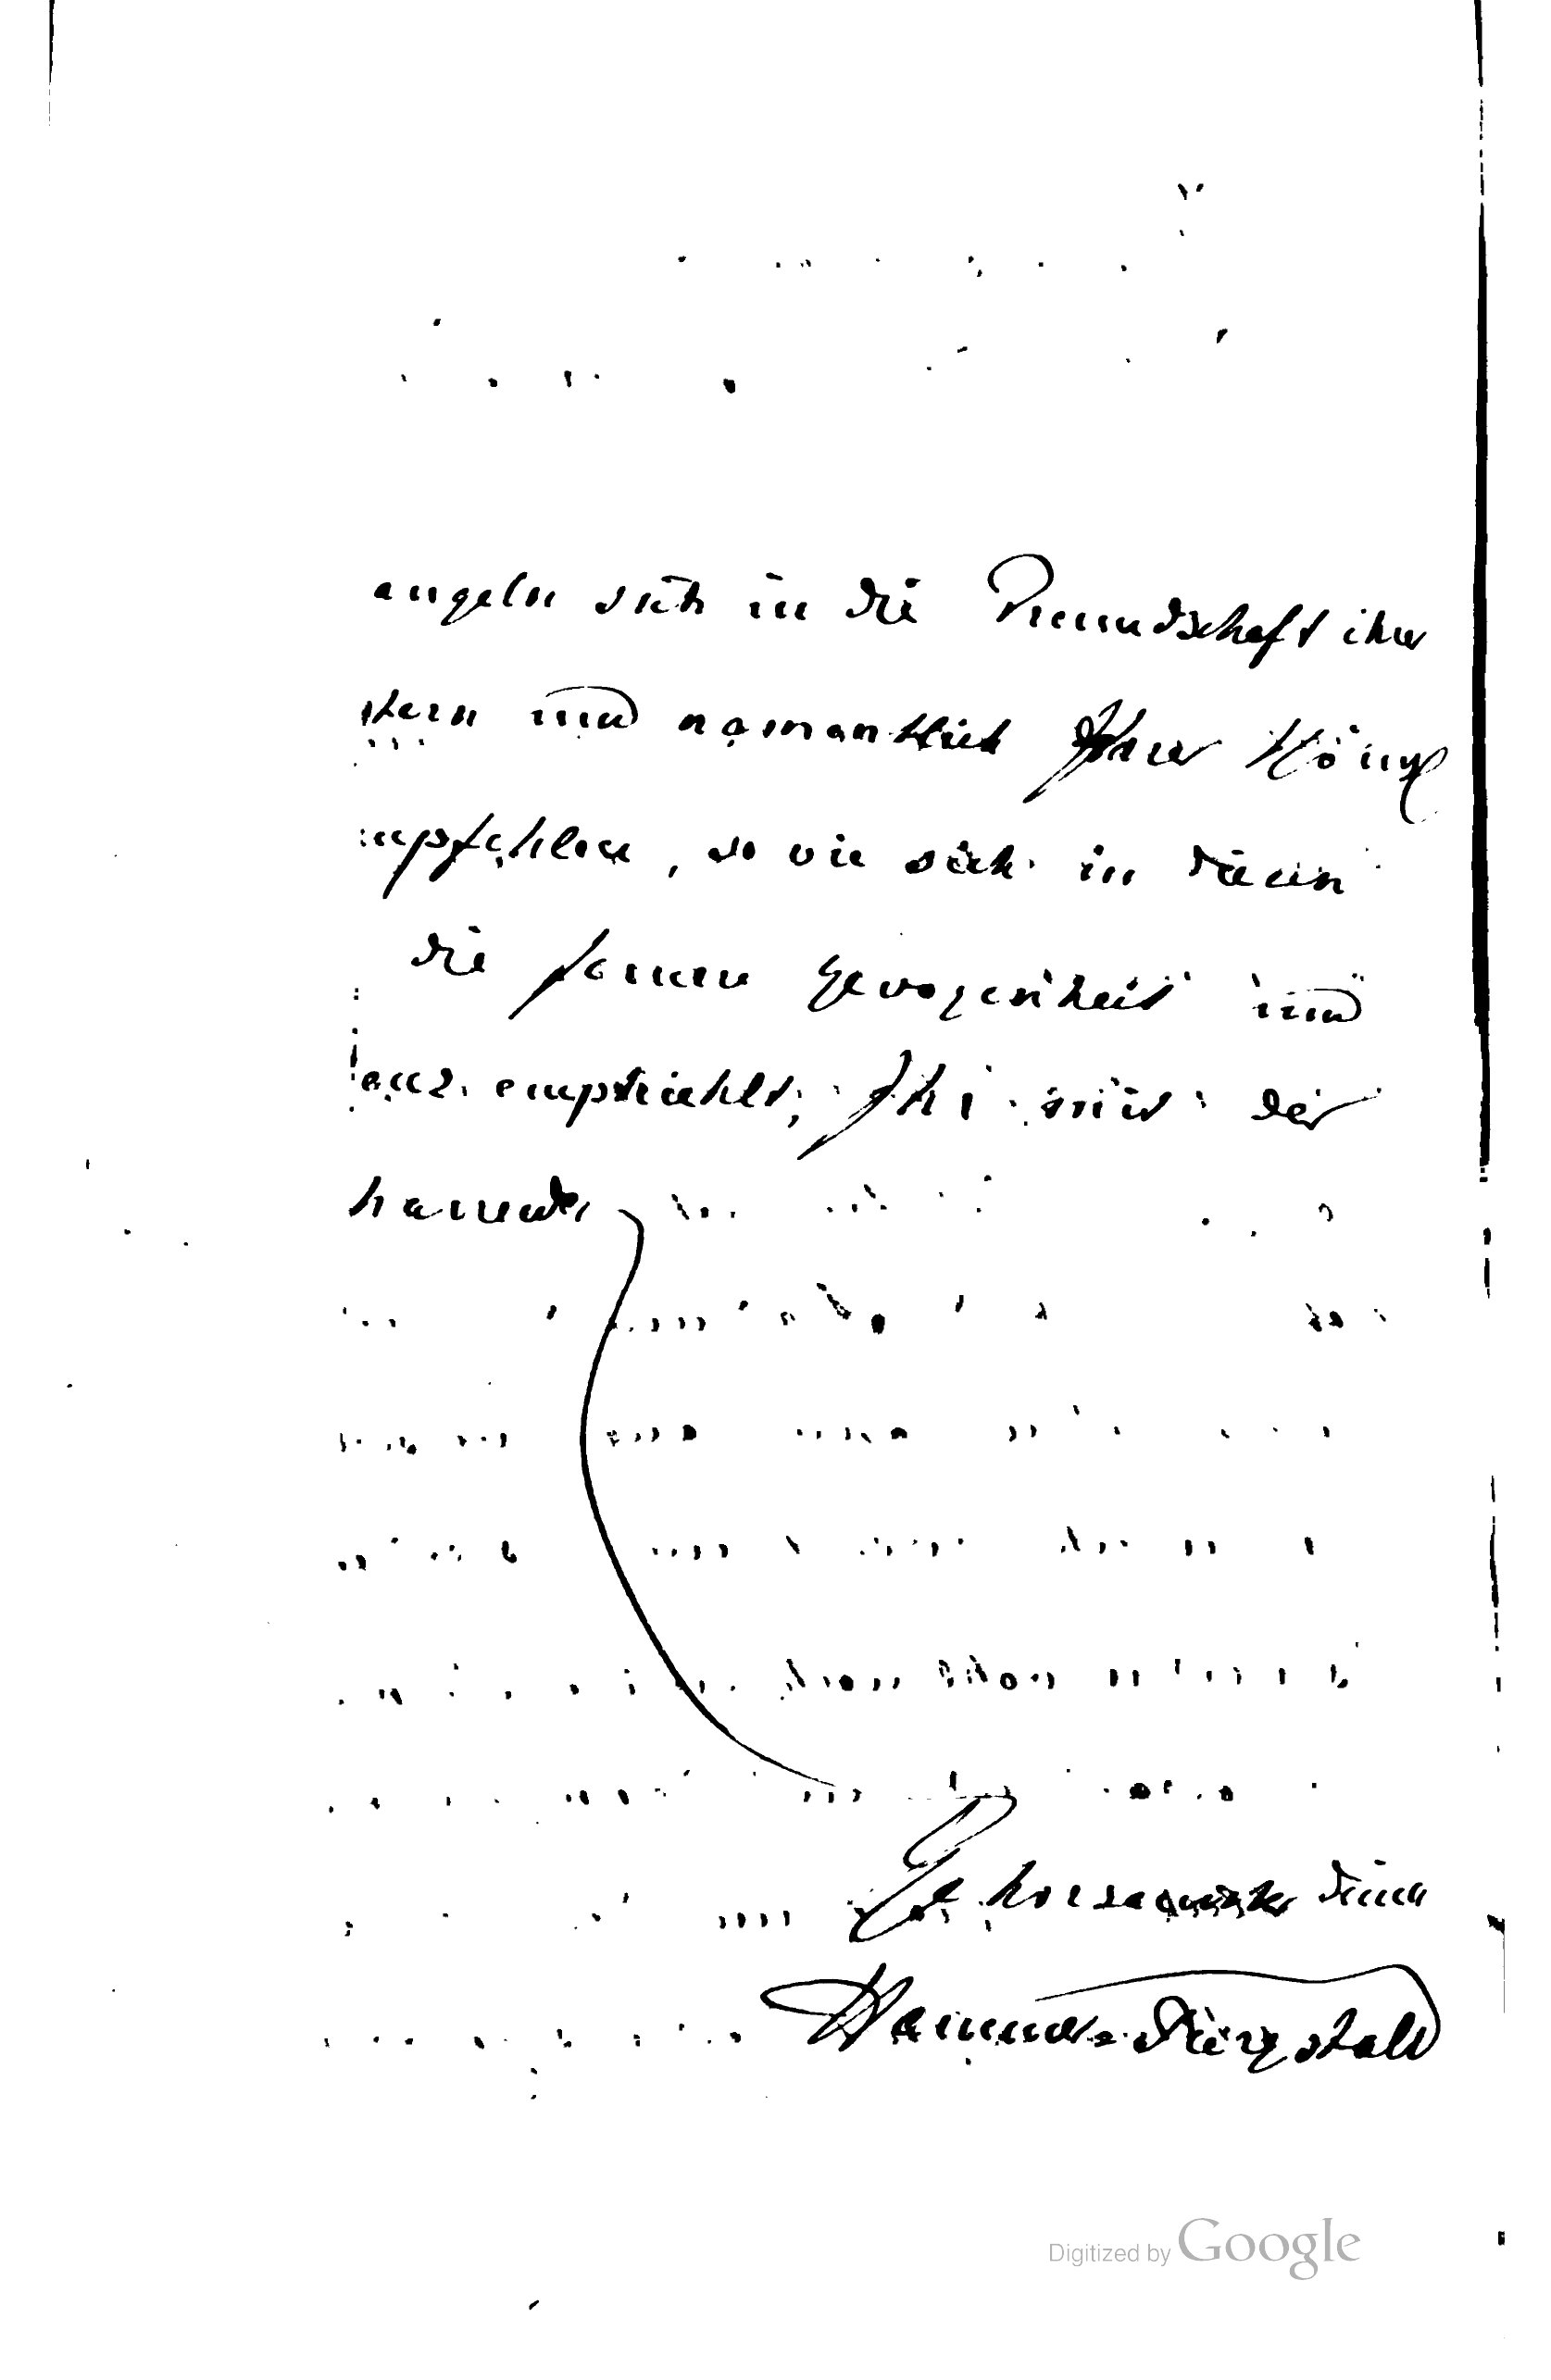 angeln sich in die Freundschaft ihrer
stern und namentlich Ihrer König
mpfehlen, so wie sich in
die fernere Gewogenheit und
empfiehlt, Ihr
hammer
Gehorsamster Diener
Hammer-Purgstall
Digitized by Google